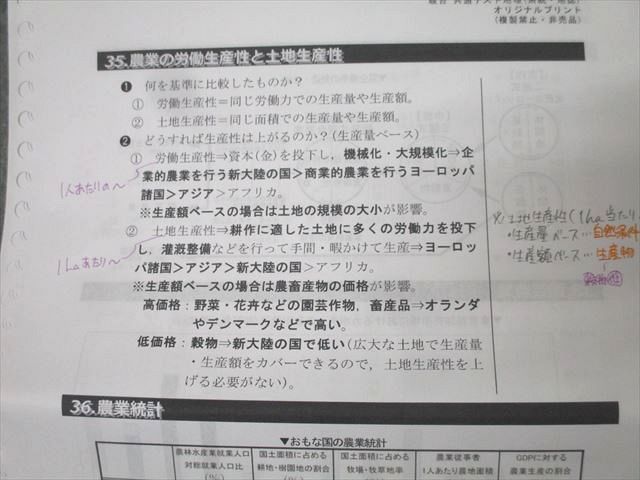 駿台 共通テスト地理(系統・地誌)
オリジナルプリント
(複製禁止・非売品)
35.農業の労働生産性と土地生産性
❶ 何を基準に比較したものか?
① 労働生産性=同じ労働力での生産量や生産額。
② 土地生産性=同じ面積での生産量や生産額。
❷ どうすれば生産性は上がるのか?(生産量ベース)
① 労働生産性⇒資本(金)を投下し,機械化・大規模化⇒企
業的農業を行う新大陸の国>商業的農業を行うヨーロッパ
諸国>アジア>アフリカ。
※生産額ベースの場合は土地の規模の大小が影響。
② 土地生産性⇒耕作に適した土地に多くの労働力を投下
し,灌漑整備などを行って手間・暇かけて生産⇒ヨーロッ
パ諸国>アジア>新大陸の国>アフリカ。
※生産額ベースの場合は農畜産物の価格が影響。
高価格:野菜・花卉などの園芸作物,畜産品⇒オランダ
やデンマークなどで高い。
低価格:穀物⇒新大陸の国で低い(広大な土地で生産量
・生産額をカバーできるので,土地生産性を上
げる必要がない)。
1人あたりの〜
1haあたり〜
※土地生産性(1ha当たり
・生産量ベース…自然条件
・生産額ベース…生産物
36.農業統計
▼おもな国の農業統計
農林水産業就業人口
対総就業人口比
(%)
国土面積に占める
耕地・樹園地の割合
(%)
国土面積に占める
牧場・牧草地率
農業従事者
1人あたり農地面積
GDPに対する
農業生産の割合